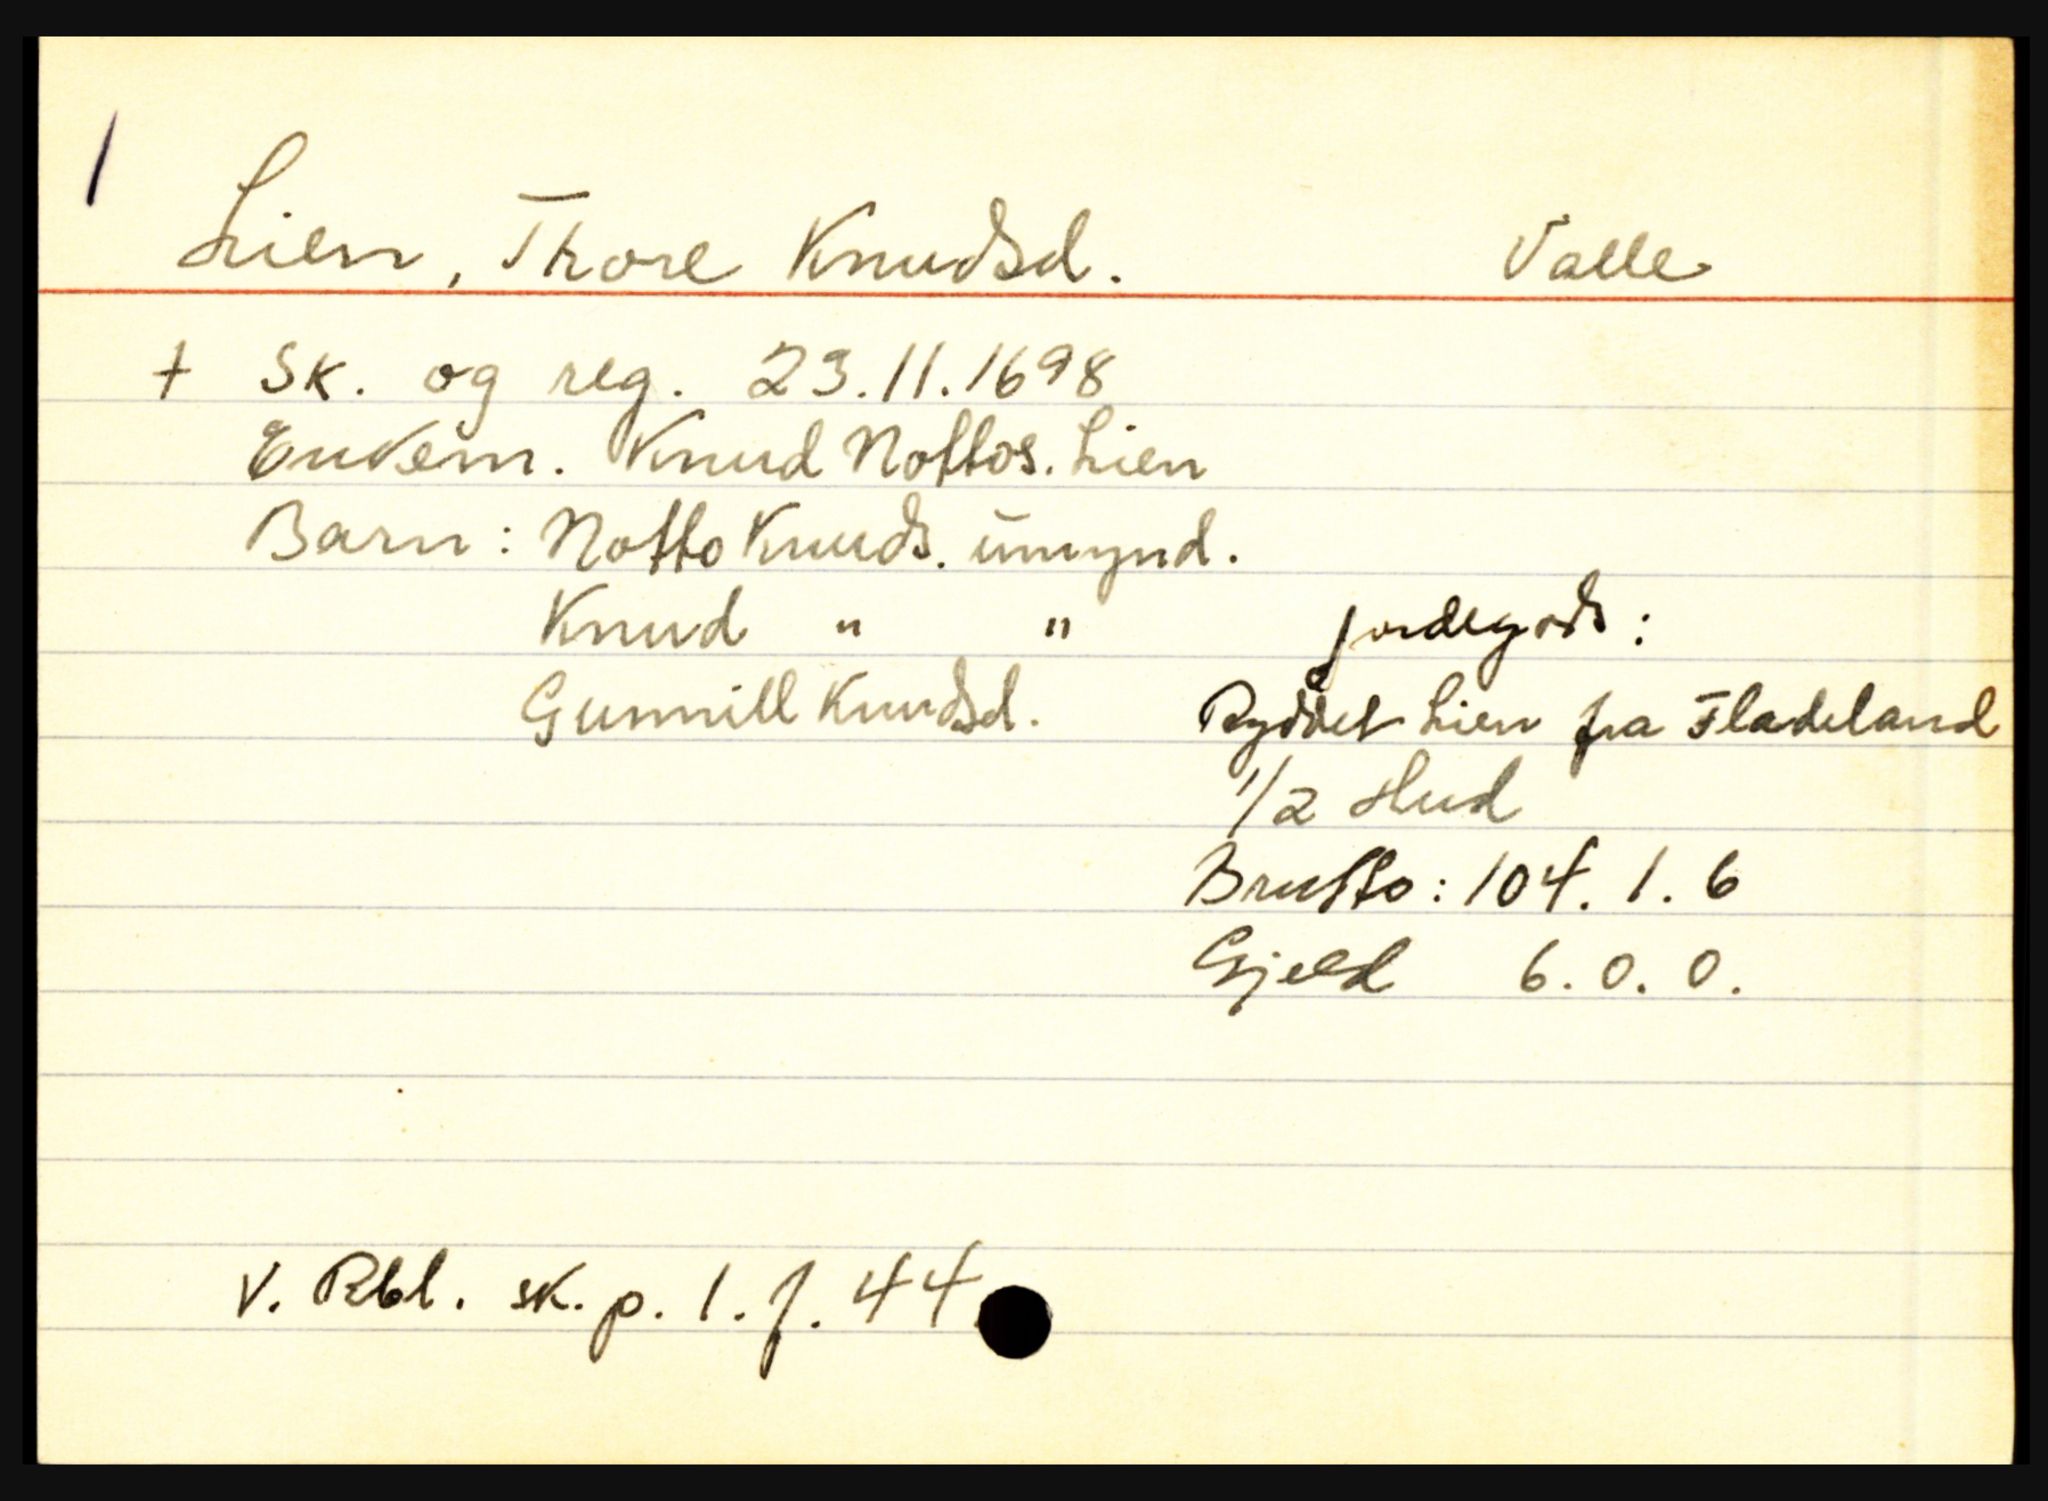 1
Lien, Thore Knudsd. Valle
† Sk. og reg. 23.11.1698
Enkem. Knud Nottos. Lien
Barn: Notto Knuds. umynd.
Knud " "
Gunnill Knudsd.
Jordegods:
Ryddet Lien fra Fladeland
1/2 Hud
Brutto: 104. 1. 6
Gjeld 6. 0. 0.
V. Rbl. sk. p. 1. f. 44